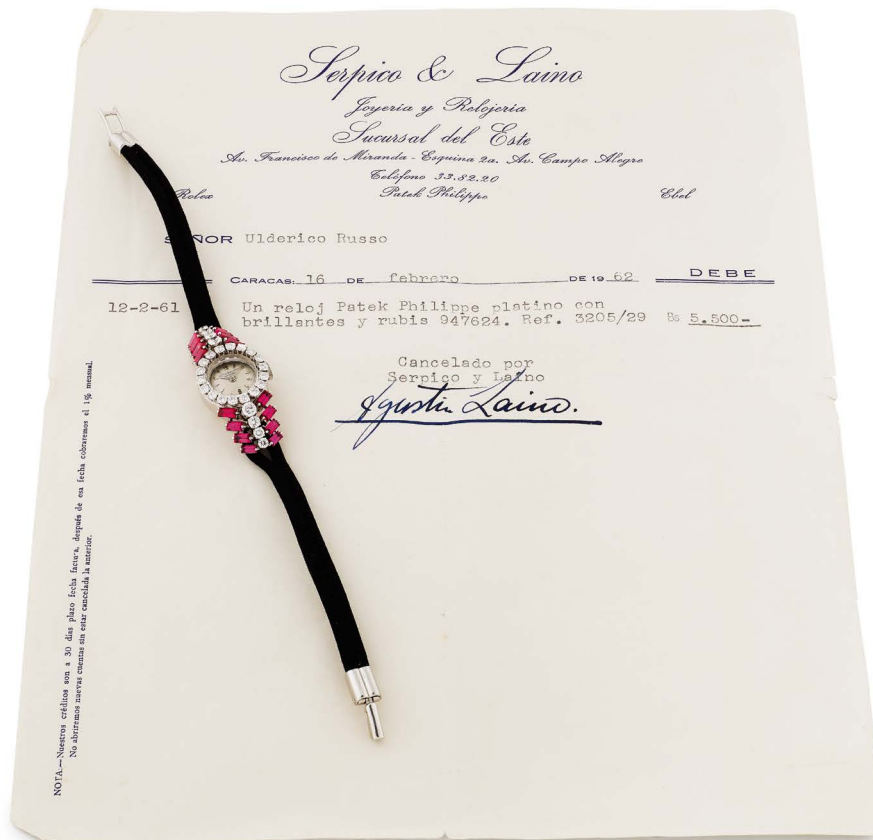 Serpico & Laino
Joyeria y Relojeria
Sucursal del Este
Av. Francisco de Miranda - Esquina 2a. Av. Campo Alegre
Teléfono 33.82.20
Rolex Patek Philippe Ebel
SEÑOR Ulderico Russo
CARACAS: 16 DE febrero DE 19 62 DEBE
12-2-61 Un reloj Patek Philippe platino con
brillantes y rubis 947624. Ref. 3205/29 Bs 5.500-
Cancelado por
Serpico y Laino
Agustin Laino.
NOTA:—Nuestros créditos son a 30 días plazo fecha factura, después de esa fecha cobraremos el 1% mensual.
No abriremos nuevas cuentas sin estar cancelada la anterior.